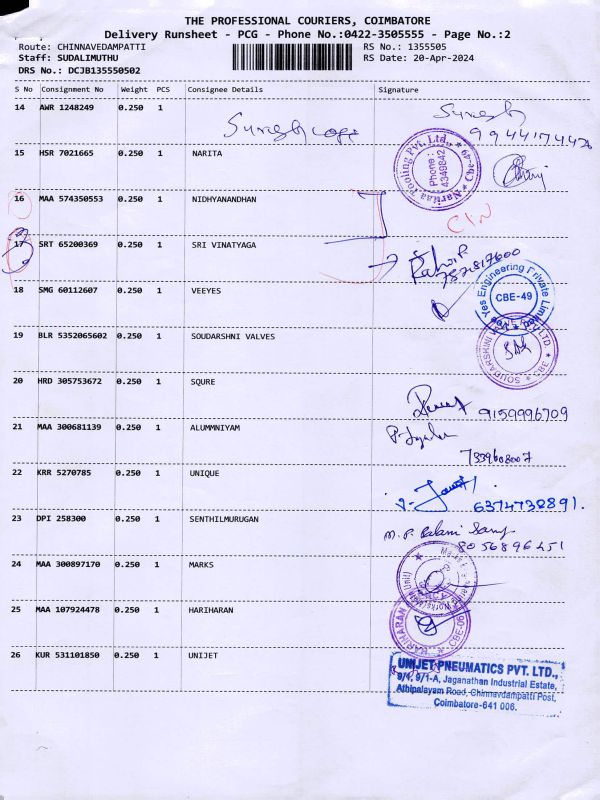 THE PROFESSIONAL COURIERS, COIMBATORE
Delivery Runsheet - PCG - Phone No.:0422-3505555 - Page No.:2
Route: CHINNAVEDAMPATTI RS No.: 1355505
Staff: SUDALIMUTHU RS Date: 20-Apr-2024
DRS No.: DCJB135550502
S No Consignment No Weight PCS Consignee Details Signature
14 AWR 1248249 0.250 1
Suresh
Suresh
15 HSR 7021665 0.250 1 NARITA
Phone : 4349842
16 MAA 574350553 0.250 1 NIDHYANANDHAN
17 SRT 65200369 0.250 1 SRI VINATYAGA
18 SMG 60112607 0.250 1 VEEYES
Yes Engineering Private Limited
CBE-49
19 BLR 5352065602 0.250 1 SOUDARSHNI VALVES
20 HRD 305753672 0.250 1 SQURE
9159996709
21 MAA 300681139 0.250 1 ALUMMNIYAM
7339608007
22 KRR 5270785 0.250 1 UNIQUE
6374738891.
23 DPI 258300 0.250 1 SENTHILMURUGAN
8056896451
24 MAA 300897170 0.250 1 MARKS
25 MAA 107924478 0.250 1 HARIHARAN
HARIHARAN
CBE-06
26 KUR 531101850 0.250 1 UNIJET
UNIJET PNEUMATICS PVT. LTD.,
9/1, 9/1-A, Jaganathan Industrial Estate,
Athipalayam Road, Chinnavdampatti Post,
Coimbatore-641 006.